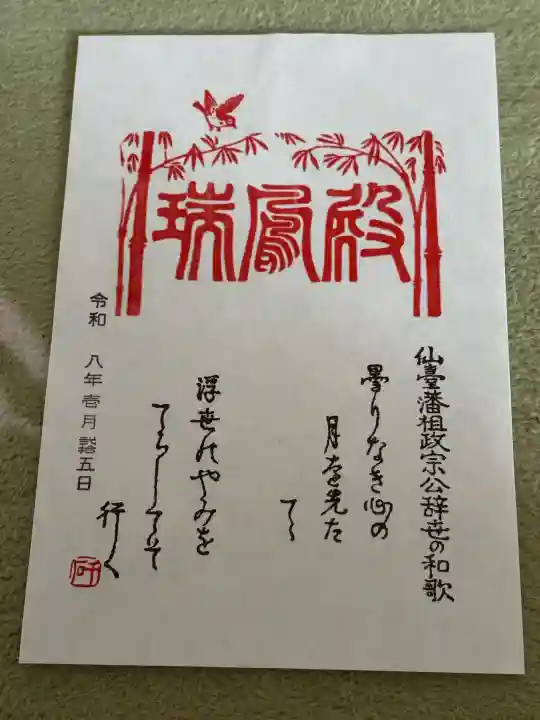 瑞鳳殿
仙臺藩祖政宗公辞世の和歌
曇りなき心の
月を先た
てゝ
浮世のやみを
てらしてそ
行く
令和 八年壱月廿五日